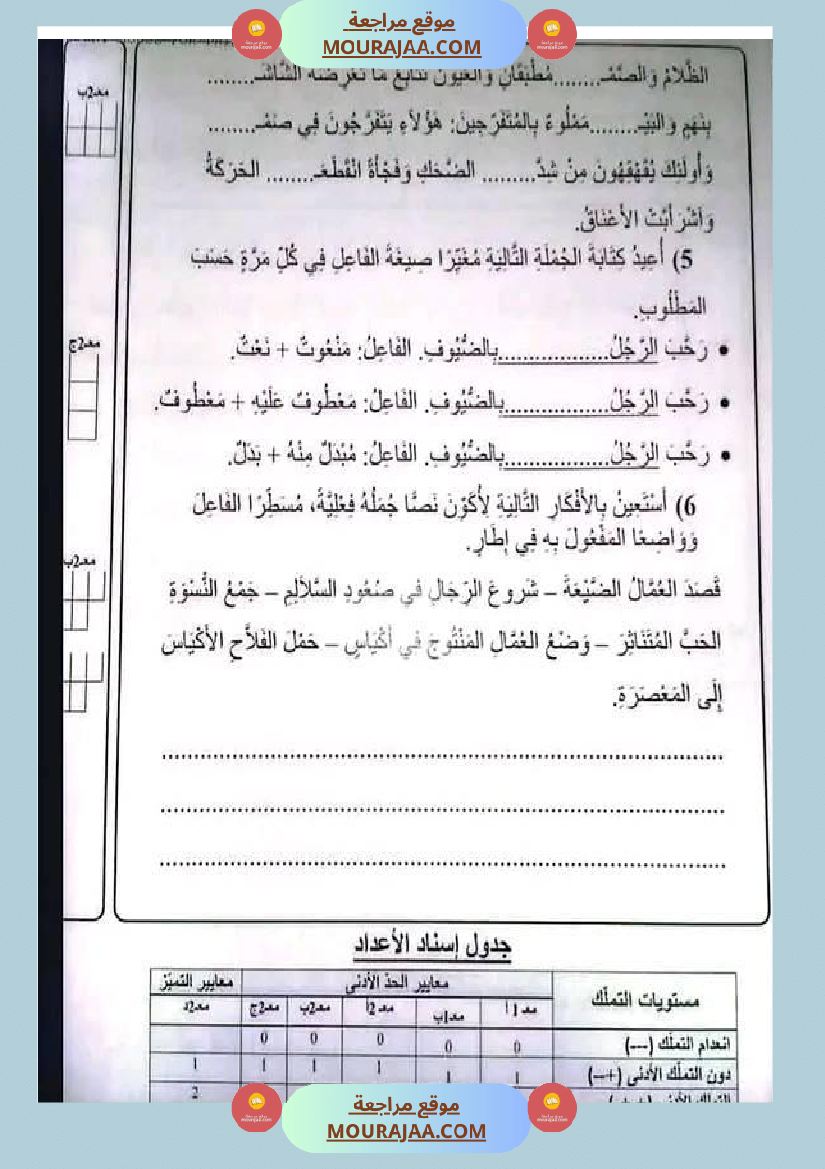 موقع مراجعة
MOURAJAA.COM
الظَّلَامُ وَالصَّمْـ........مُطْبَقَانِ وَالعُيُونُ تُتَابِعُ مَا تَعْرِضُهُ الشَّاشَـ........
بِنَهَمٍ وَالبَيْـ........مَمْلُوءٌ بِالمُتَفَرِّجِينَ: هَؤُلَاءِ يَتَفَرَّجُونَ فِي صَمْـ........
وَأُولَئِكَ يُقَهْقِهُونَ مِنْ شِدَّ......... الضَّحَكِ وَفَجْأَةً انْقَطَعَـ........ الحَرَكَةُ
وَاشْرَأَبَّتْ الأَعْنَاقُ.
5) أُعِيدُ كِتَابَةَ الجُمْلَةِ التَّالِيَةِ مُغَيِّرًا صِيغَةَ الفَاعِلِ فِي كُلِّ مَرَّةٍ حَسَبَ
المَطْلُوبِ.
• رَحَّبَ الرَّجُلُ..................بِالضُّيُوفِ. الفَاعِلُ: مَنْعُوتٌ + نَعْتٌ.
• رَحَّبَ الرَّجُلُ..................بِالضُّيُوفِ. الفَاعِلُ: مَعْطُوفٌ عَلَيْهِ + مَعْطُوفٌ.
• رَحَّبَ الرَّجُلُ..................بِالضُّيُوفِ. الفَاعِلُ: مُبْدَلٌ مِنْهُ + بَدَلٌ.
6) أَسْتَعِينُ بِالأَفْكَارِ التَّالِيَةِ لِأُكَوِّنَ نَصًّا جُمَلُهُ فِعْلِيَّةٌ، مُسَطِّرًا الفَاعِلَ
وَوَاضِعًا المَفْعُولَ بِهِ فِي إِطَارٍ.
قَصَدَ العُمَّالُ الضَّيْعَةَ – شُرُوعَ الرِّجَالِ في صُعُودِ السَّلاَلِمِ – جَمْعُ النِّسْوَةِ
الحَبَّ المُتَنَاثِرَ – وَضْعُ العُمَّالِ المَنْتُوجَ في أكْيَاسٍ – حَمْلَ الفَلاَّحِ الأَكْيَاسَ
إِلَى المَعْصَرَةِ.
................................................................
................................................................
................................................................
مع2ب
مع2ج
مع2ب
جدول إسناد الأعداد
مستويات التملّك معايير الحدّ الأدنى معايير التميّز
مع1أ مع1ب مع2أ مع2ب مع2ج مع2د
انعدام التملّك (---) 0 0 0 0 0
دون التملّك الأدنى (+--) 1 1 1 1 1 1
2
موقع مراجعة
MOURAJAA.COM